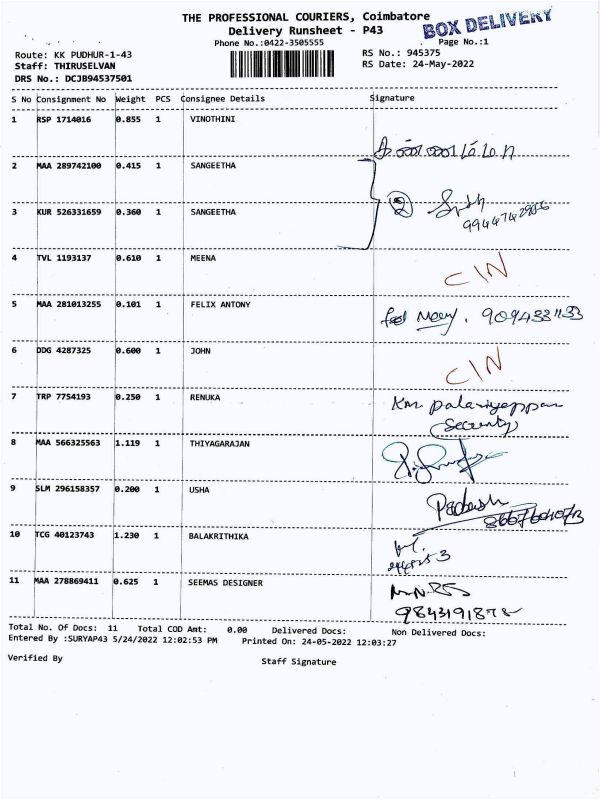 THE PROFESSIONAL COURIERS, Coimbatore
BOX DELIVERY
Delivery Runsheet - P43
Phone No.:0422-3505555
Page No.:1
Route: KK PUDHUR-1-43
RS No.: 945375
Staff: THIRUSELVAN
RS Date: 24-May-2022
DRS No.: DCJB94537501
S No Consignment No Weight PCS Consignee Details Signature
1 RSP 1714016 0.855 1 VINOTHINI
2 MAA 289742100 0.415 1 SANGEETHA
3 KUR 526331659 0.360 1 SANGEETHA
2
4 TVL 1193137 0.610 1 MEENA
CIN
5 MAA 281013255 0.101 1 FELIX ANTONY
6 DDG 4287325 0.600 1 JOHN
CIN
7 TRP 7754193 0.250 1 RENUKA
(Security)
8 MAA 566325563 1.119 1 THIYAGARAJAN
9 SLM 296158357 0.200 1 USHA
10 TCG 40123743 1.230 1 BALAKRITHIKA
11 MAA 278869411 0.625 1 SEEMAS DESIGNER
Total No. Of Docs: 11 Total COD Amt: 0.00 Delivered Docs: Non Delivered Docs:
Entered By :SURYAP43 5/24/2022 12:02:53 PM Printed On: 24-05-2022 12:03:27
Verified By Staff Signature